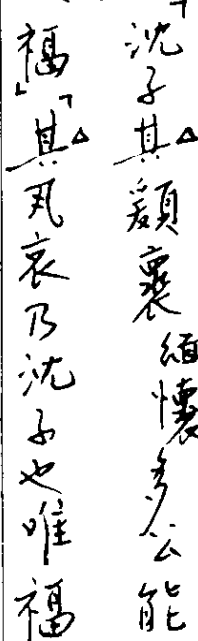 「沈子其顀褱緬懷多公能
福」「其丮哀乃沈子也唯福